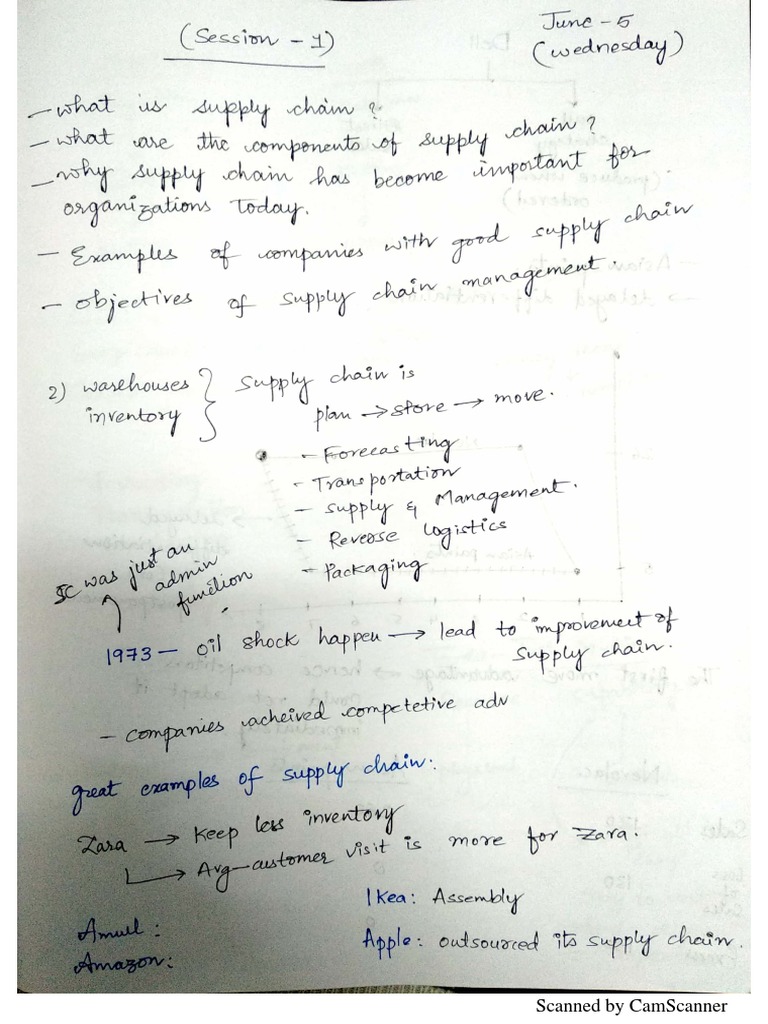 (Session - 1)
June - 5
(wednesday)
- what is supply chain?
- what are the components of supply chain?
- why supply chain has become important for
organizations Today.
- Examples of companies with good supply chain
- objectives of supply chain management.
2) warehouses } Supply chain is
inventory
plan → store → move.
- Forecasting
- Transportation
- supply & Management.
- Reverse logistics
- Packaging
SC was just an
admin
function
1973 - oil shock happen → lead to improvement of
supply chain.
- companies acheived competetive adv
great examples of supply chain:
Zara → Keep less inventory
→ Avg-customer visit is more for Zara.
Ikea: Assembly
Amul:
Apple: outsourced its supply chain.
Amazon:
Scanned by CamScanner